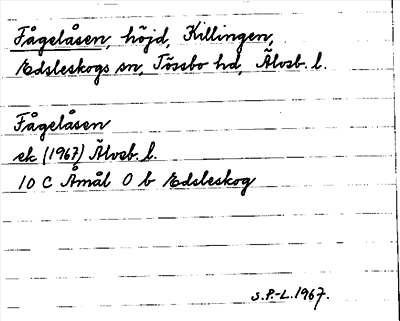 Fågelåsen, höjd, Killingen,
Edsleskogs sn, Tössbo hd, Älvsb. l.
Fågelåsen
ek (1967) Älvsb. l.
10 C Åmål 0 b Edsleskog
S.P.-L. 1967.